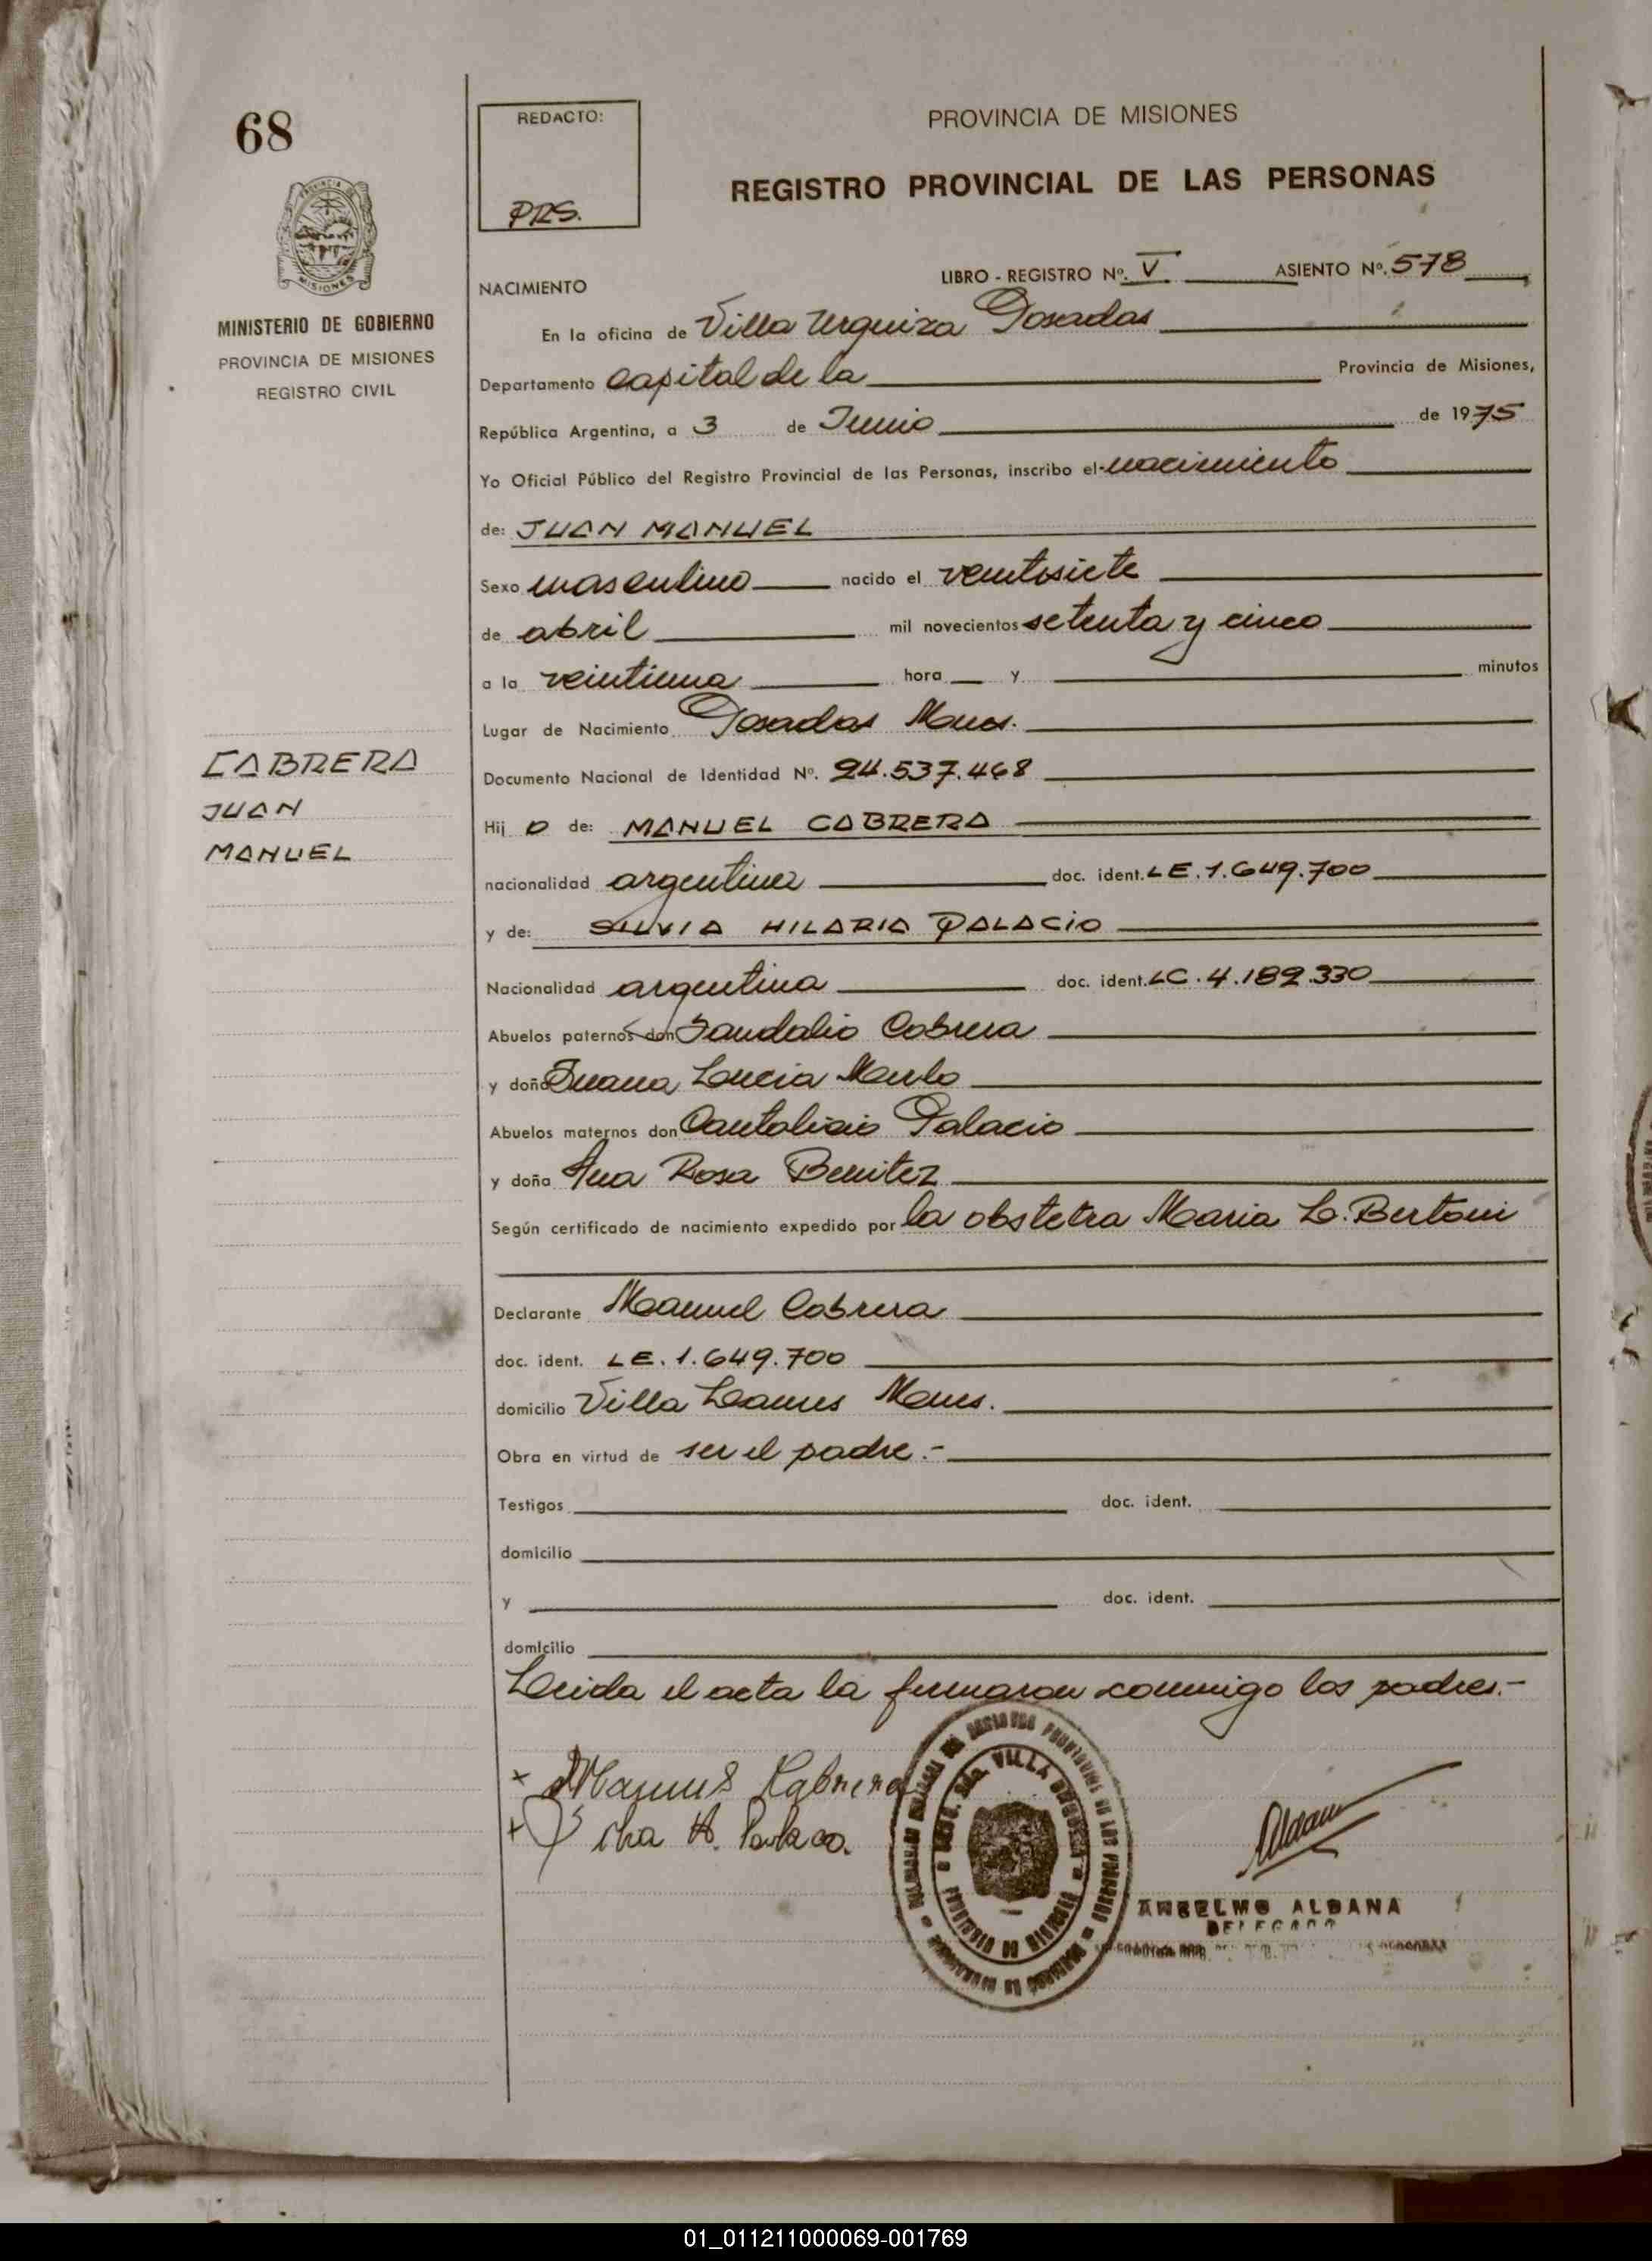 68
REDACTO:
PRS.
PROVINCIA DE MISIONES
REGISTRO PROVINCIAL DE LAS PERSONAS
MINISTERIO DE GOBIERNO
PROVINCIA DE MISIONES
REGISTRO CIVIL
LIBRO - REGISTRO Nº. V ASIENTO Nº. 578
NACIMIENTO
En la oficina de Villa Urquiza Posadas
Departamento capital de la Provincia de Misiones,
República Argentina, a 3 de Junio de 1975
Yo Oficial Público del Registro Provincial de las Personas, inscribo el nacimiento
de: JUAN MANUEL
Sexo masculino nacido el veintisiete
de abril mil novecientos setenta y cinco
a la veintiuna hora y minutos
Lugar de Nacimiento Posadas Mnes.
CABRERA
JUAN
MANUEL
Documento Nacional de Identidad Nº. 24.537.468
Hij o de: MANUEL CABRERA
nacionalidad argentina doc. ident. LE. 1.649.700
y de: SILVIA HILARIA PALACIO
Nacionalidad argentina doc. ident. LC. 4.189.330
Abuelos paternos don Sandalio Cabrera
y doña Juana Lucia Merlo
Abuelos maternos don Cantalicio Palacio
y doña Ana Rosa Benitez
Según certificado de nacimiento expedido por la obstetra Maria L. Bertoni
Declarante Manuel Cabrera
doc. ident. LE. 1.649.700
domicilio Villa Lanus Mnes.
Obra en virtud de ser el padre.-
Testigos doc. ident.
domicilio
y doc. ident.
domicilio
Leida el acta la firmaron conmigo los padres.-
Manuel Kabrera
H. Palaco.
VILLA URQUIZA
Aldana
ANSELMO ALDANA
DELEGADO
01_011211000069-001769